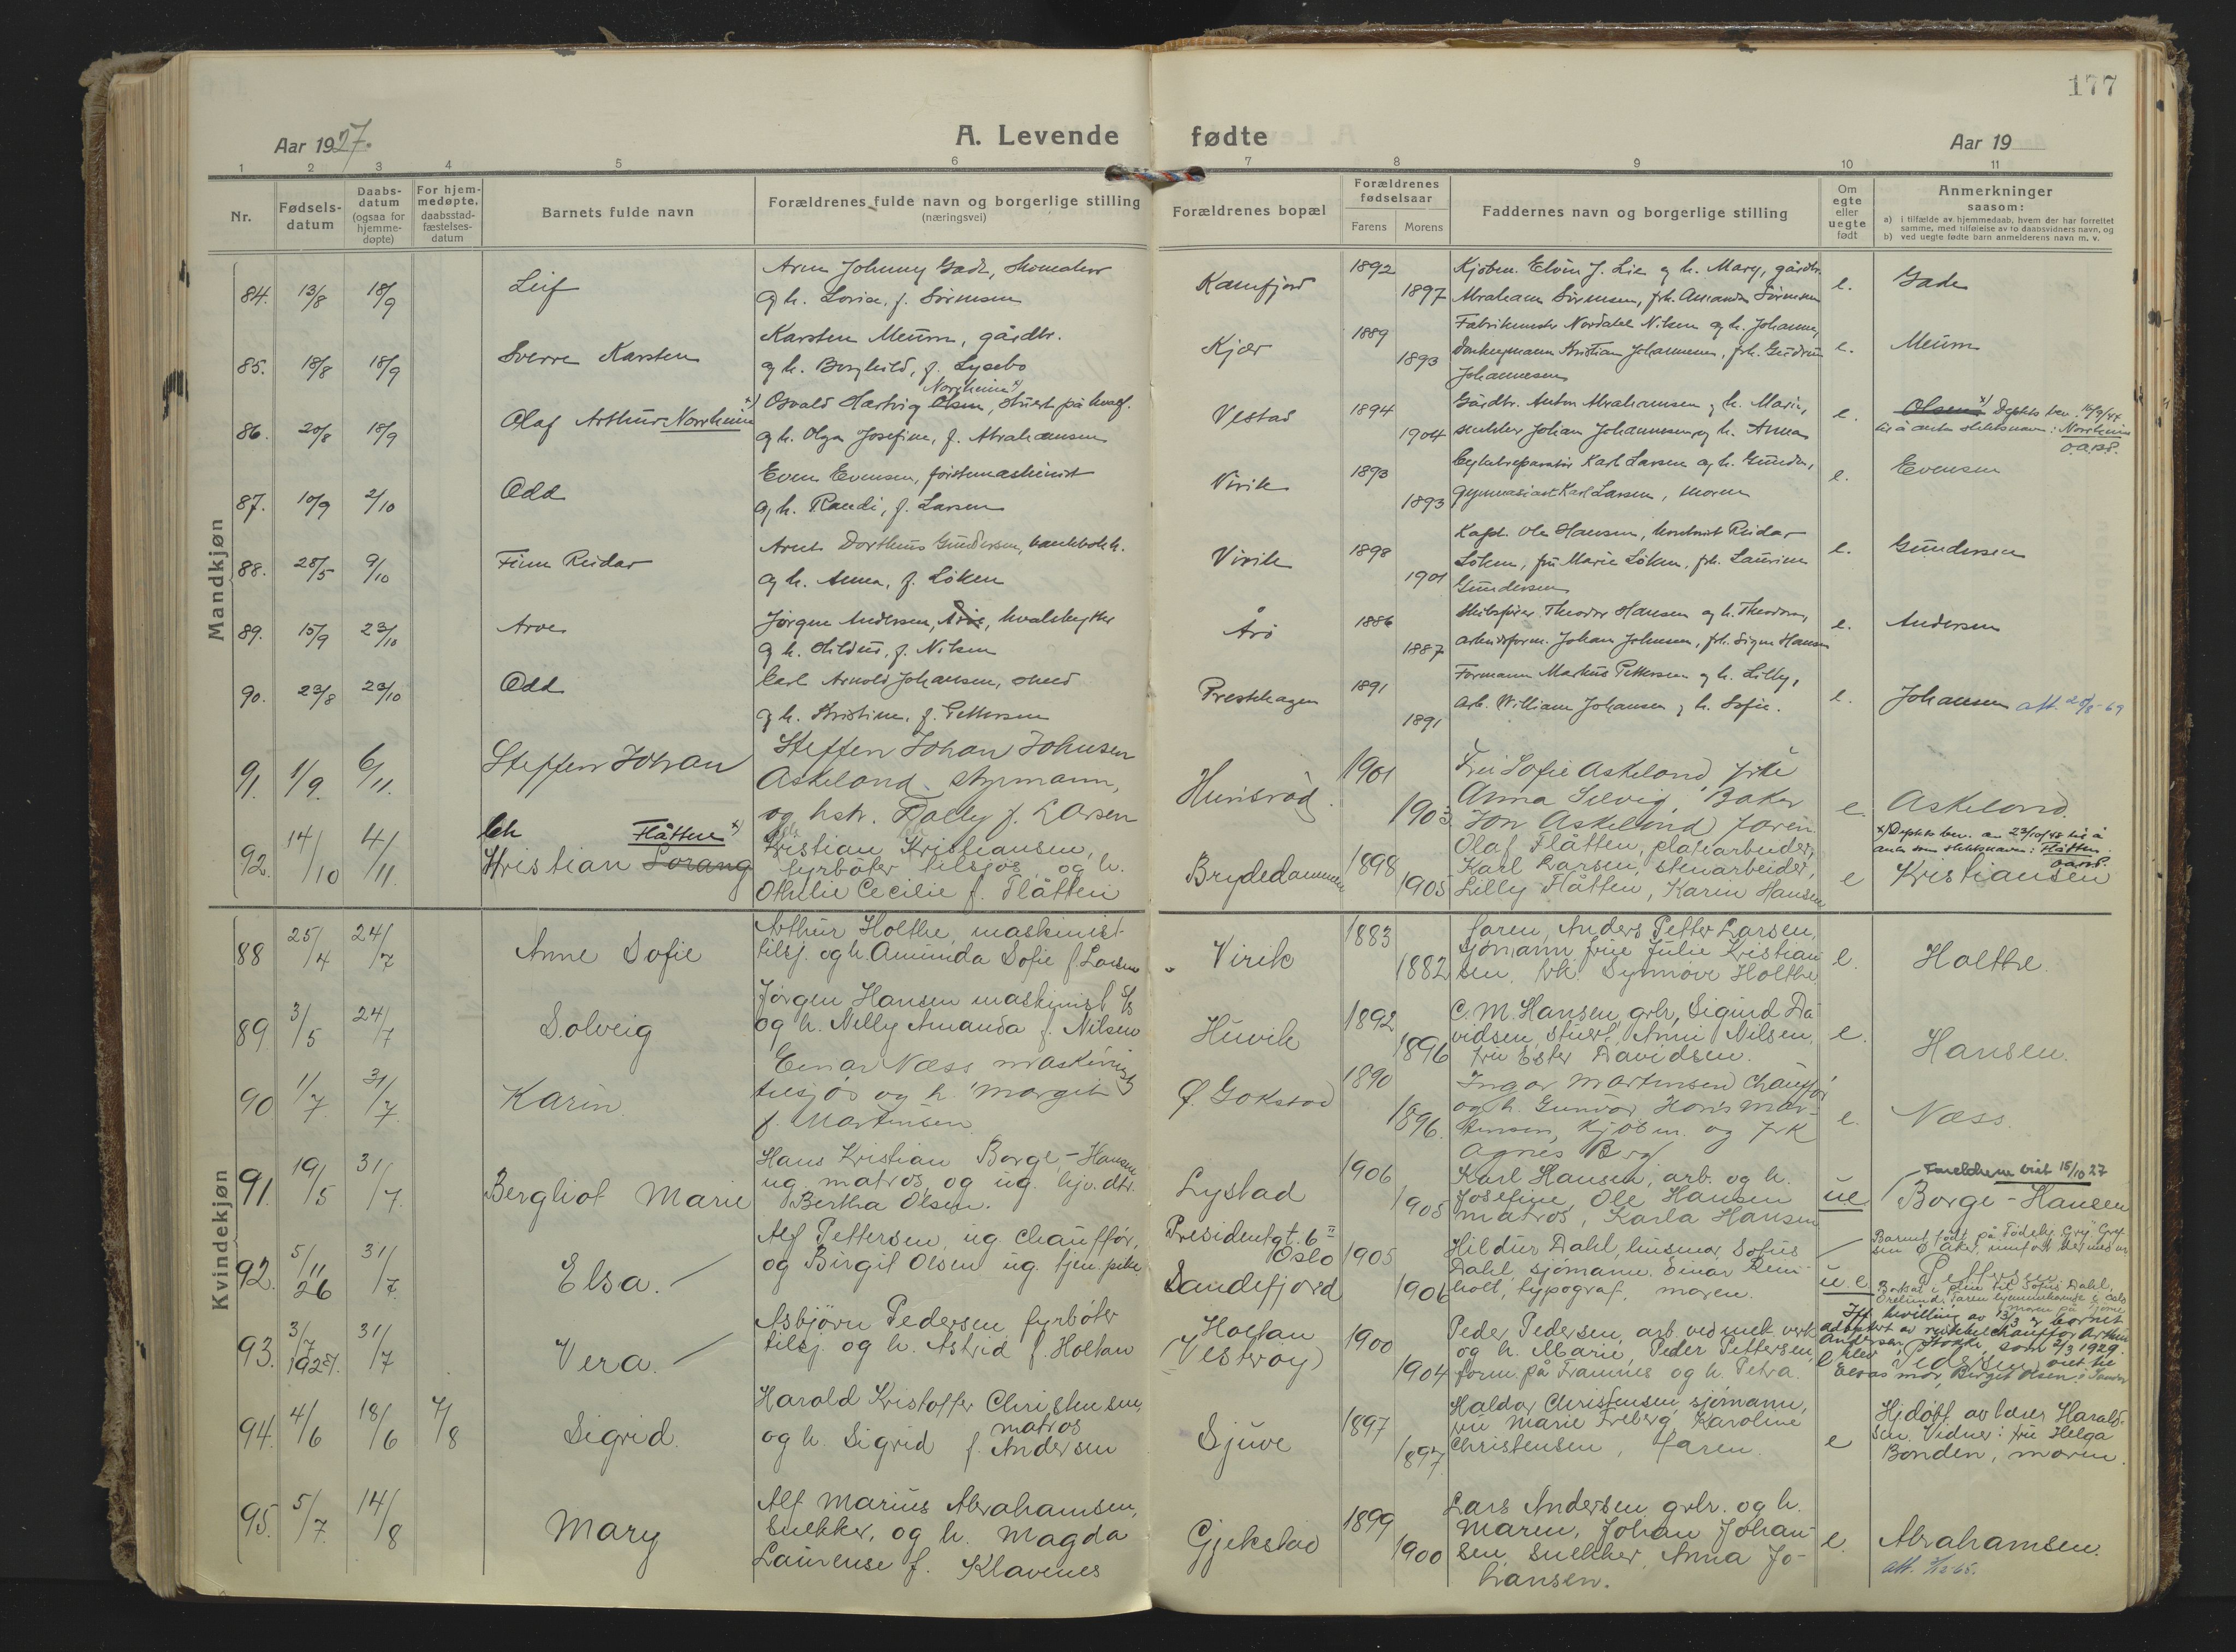 177
Aar 1927.
A. Levende fødte
Aar 19
1 2 3 4 5 6 7 8 9 10 11
Nr.
Fødsels-
datum
Daabs-
datum
(ogsaa for
hjemme-
døpte)
For hjem-
medøpte.
daabsstad-
fæstelses-
datum
Barnets fulde navn
Forældrenes fulde navn og borgerlige stilling
(næringsvei)
Forældrenes bopæl
Forældrenes
fødselsaar
Farens Morens
Faddernes navn og borgerlige stilling
Om
egte
eller
uegte
født
Anmerkninger
saasom:
a) i tilfælde av hjemmedaab, hvem der har forrettet
samme, med tilføielse av to daabsvidners navn, og
b) ved uegte fødte barn anmelderens navn m. v.
Mandkjøn
84. 13/8 18/9
Leif
Johnny Gade,
og h. Lovise, f. Sörensen
Kamfjord
1892
1897
Kjöbm. Elvin J. Lie og h. Mary, gårdbr.
Abraham Sörensen, frk. Amanda Sörensen
e.
Gade
85. 18/8 18/9
Sverre Karsten
Karsten Meum, gårdbr.
og h. Borghild, f. Lysebo
Kjær
1889
1893
Nilsen og h. Johanne,
Donkeymann Kristian Johannesen, frk. Gudrun
Johannesen
e.
Meum
86. 20/8 18/9
Olaf Arthur Norrheim x)
Norrheim x)
Osvald Hartvig Olsen, stuert på hvalf.
og h. Olga Josefine, f. Abrahamsen
Vestad
1894
1904
Gårdbr. Anton Abrahamsen og h. Marie,
snekker Johan Johannesen og h. Anna
e.
Olsen x) Depts bev. 16/3/44
til å anta slektsnavn: Norrheim
87. 10/9 2/10
Odd
Even Evensen, förstemaskinist
og h. Randi, f. Larsen
Virik
1893
1893
Cykelreparatör Karl Larsen og h. Gunda,
gymnasiast Karl Larsen, moren
e.
Evensen
88. 28/5 9/10
Finn Reidar
Arnt Dortheus Gundersen, bankbokh.
og h. Anna, f. Löken
Virik
1898
1901
Kapt. Ole Hansen, Reidar
Löken, fru Marie Löken, frk. Laurine
Gundersen
e.
Gundersen
89. 15/9 23/10
Arve
Jörgen Andersen, Årö, hvalskytter
og h. Hildur, f. Nilsen
Årö
1886
1887
Skibsförer Theodor Hansen og h. Theodora,
arbeidsform. Johan Johnsen, frk. Signe Hansen
e.
Andersen
90. 23/8 23/10
Odd
Carl Arnold Johansen, smed
og h. Kristine, f. Pettersen
Prestehagen
1891
1891
Formann Markus Pettersen og h. Lilly,
arb. William Johansen og h. Sofie.
e.
Johansen att. 20/8-69
91. 1/9. 6/11.
Steffen Johan
Steffen Johan Johnsen
Askeland, styrmann,
og hstr. Dolly f. Larsen
Hunsröd.
1901
1903
Fru Sofie Askeland frk
Anna Selvig, Baker
Jon Askeland faren
e.
Askeland.
92. 14/10 4/11.
Ch Flåtten x)
Kristian Lorang
Kristian Kristiansen,
fyrböter tilsjös og h.
Othilie Cecilie f. Flåtten
Brydedammen
1898
1905
Olaf Flåtten, platearbeider,
Karl Larsen, stenarbeider,
Lilly Flåtten, Karin Hansen
e
x) Depts bev. av 23/10/45 til å
anta som slektsnavn: Flåtten.
Kristiansen
Kvindekjøn
88 25/4 24/7
Anne Sofie
Arthur Holthe, maskinist
tilsj. og h. Amunda Sofie f. Larsen
Virik
1883
1882
faren, Anders Petter Larsen,
sjömann, frue Julie Kristian
sen, frk. Synnöve Holthe
e.
Holthe.
89. 3/5 24/7
Solveig
Jörgen Hansen maskinist t/s
og h. Nelly Amanda f. Nilsen
Huvik
1892
1896
C. M. Hansen grbr, Sigurd Da
vidsen, stuert, Anni Nilsen,
fru Ester Davidsen.
e.
Hansen.
90 1/7 31/7.
Karin.
Einar Næss maskinist
tilsjös og h. Margit
f. Martinsen
Ø. Gokstad
1890
1896.
Ingar Martinsen chauffør
og h. Gunvor, Mar-
tinsen, kjöbm. og frk
Agnes Berg
e.
Næss.
91. 19/5 31/7.
Bergliot Marie
Hans Kristian Borge-Hansen
ug. matros, og ug. hjv. dtr.
Bertha Olsen.
Lystad
1906
1905
Karl Hansen, arb. og h.
Josefine, Ole Hansen
matros, Karla Hansen
u.e.
Foreldrene viet 15/10 27
Borge-Hansen
92. 5/11 26 31/7.
Elsa.
Alf Pettersen, ug. chauffør,
og Birgit Olsen ug. tjen. pike
Presidentgt. 6 II
Oslo
Sandefjord
1905
1906
Hildur Dahl, husmor, Sofus
Dahl, sjömann. Einar Rem-
holt, typograf, moren.
u.e.
Pettersen
93. 3/7 1927. 31/7
Vera.
Asbjörn Pedersen fyrböter
tilsj. og h. Astrid f. Holtan
Holtan
(Vesteröy)
1900
1904
Peder Pedersen, arb. ved mek. verk
og h. Marie, Peder Pettersen,
form. på Framnes og h. Petra.
e
Pedersen
94. 4/6 18/6 7/8
Sigrid.
Harald Kristoffer Christensen,
matros
og h. Sigrid f. Andersen
Sjuve
1897
1897.
Haldor Christensen, sjömann,
fru Marie Friberg, Karoline
Christensen, faren.
e
Hjdöpt av lærer Harald-
sen. Vidner: fru Helga
Bonden, moren.
95. 5/7. 14/8
Mary
Alf Marius Abrahamsen,
snekker, og h. Magda
Laurense f. Klavenes
Gjekstad
1899
1900
Lars Andersen grbr. og h.
Maren, Johan Johan-
sen snekker, Anna Jo-
hansen.
e.
Abrahamsen.